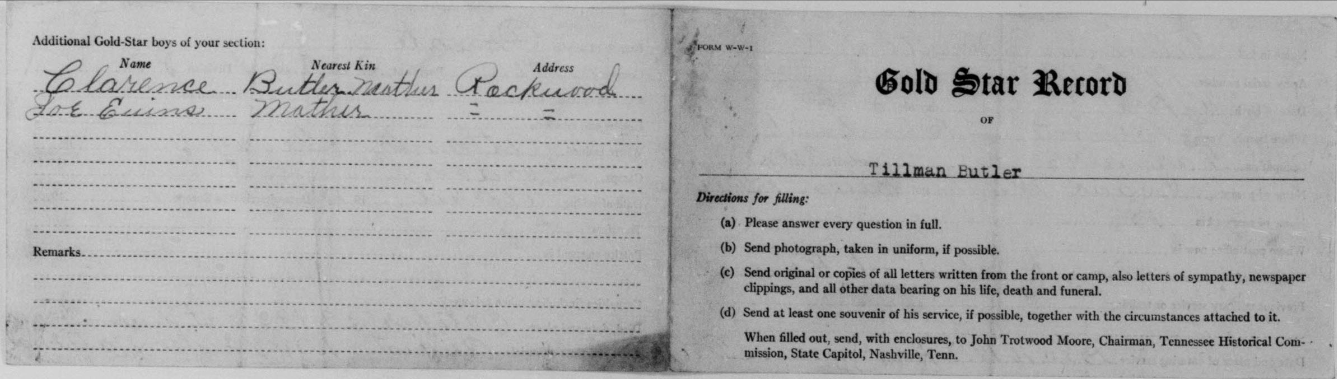 Additional Gold-Star boys of your section:
Name Nearest Kin Address
Clarence Butler Mother Rockwood
Joe Euins Mother " "
Remarks
FORM W-W-1
Gold Star Record
OF
Tillman Butler
Directions for filling:
(a) Please answer every question in full.
(b) Send photograph, taken in uniform, if possible.
(c) Send original or copies of all letters written from the front or camp, also letters of sympathy, newspaper
clippings, and all other data bearing on his life, death and funeral.
(d) Send at least one souvenir of his service, if possible, together with the circumstances attached to it.
When filled out, send, with enclosures, to John Trotwood Moore, Chairman, Tennessee Historical Com-
mission, State Capitol, Nashville, Tenn.